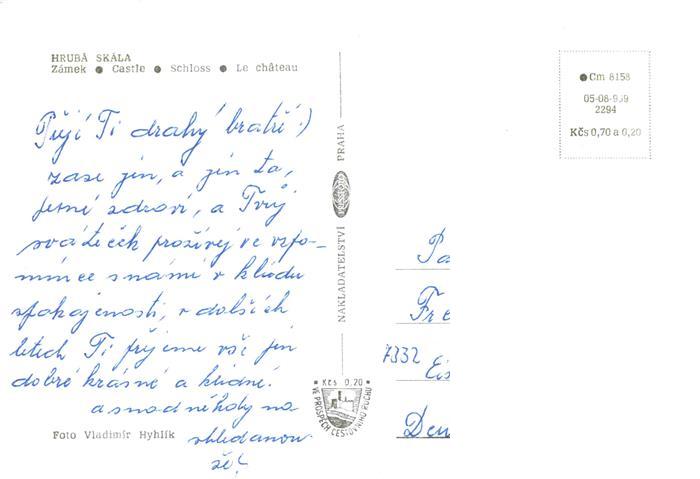 HRUBÁ SKÁLA
Zámek ● Castle ● Schloss ● Le château
Přejí Ti drahý bratře :)
zase jen, a jen ta,
zdraví, a Tvůj
sváteček prožívej ve vzpo-
mínce s námi v klidu
spokojenosti, v dalších
letech Ti přejeme vše jen
dobré krásné a klidné.
a snad někdy na
shledanou
že!
Foto Vladimír Hyhlík
NAKLADATELSTVÍ
PRAHA
● Cm 8158
05-08-989
2294
Kčs 0,70 a 0,20
Pa
Fre
7332 Eis
Deu
● Kčs 0,20 ●
VE PROSPĚCH CESTOVNÍHO RUCHU